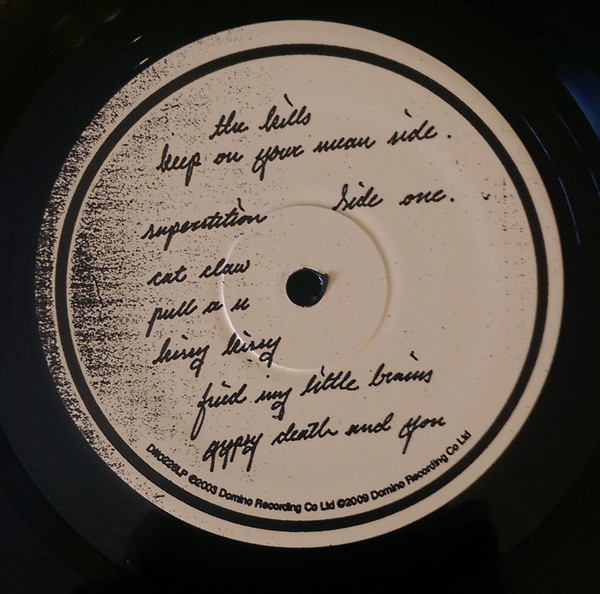 the kills
keep on your mean side.
Side one.
superstition
cat claw
pull a u
kissy kissy
fried my little brains
gypsy death and you
DNO226LP ©2003 Domino Recording Co Ltd ©2009 Domino Recording Co Ltd